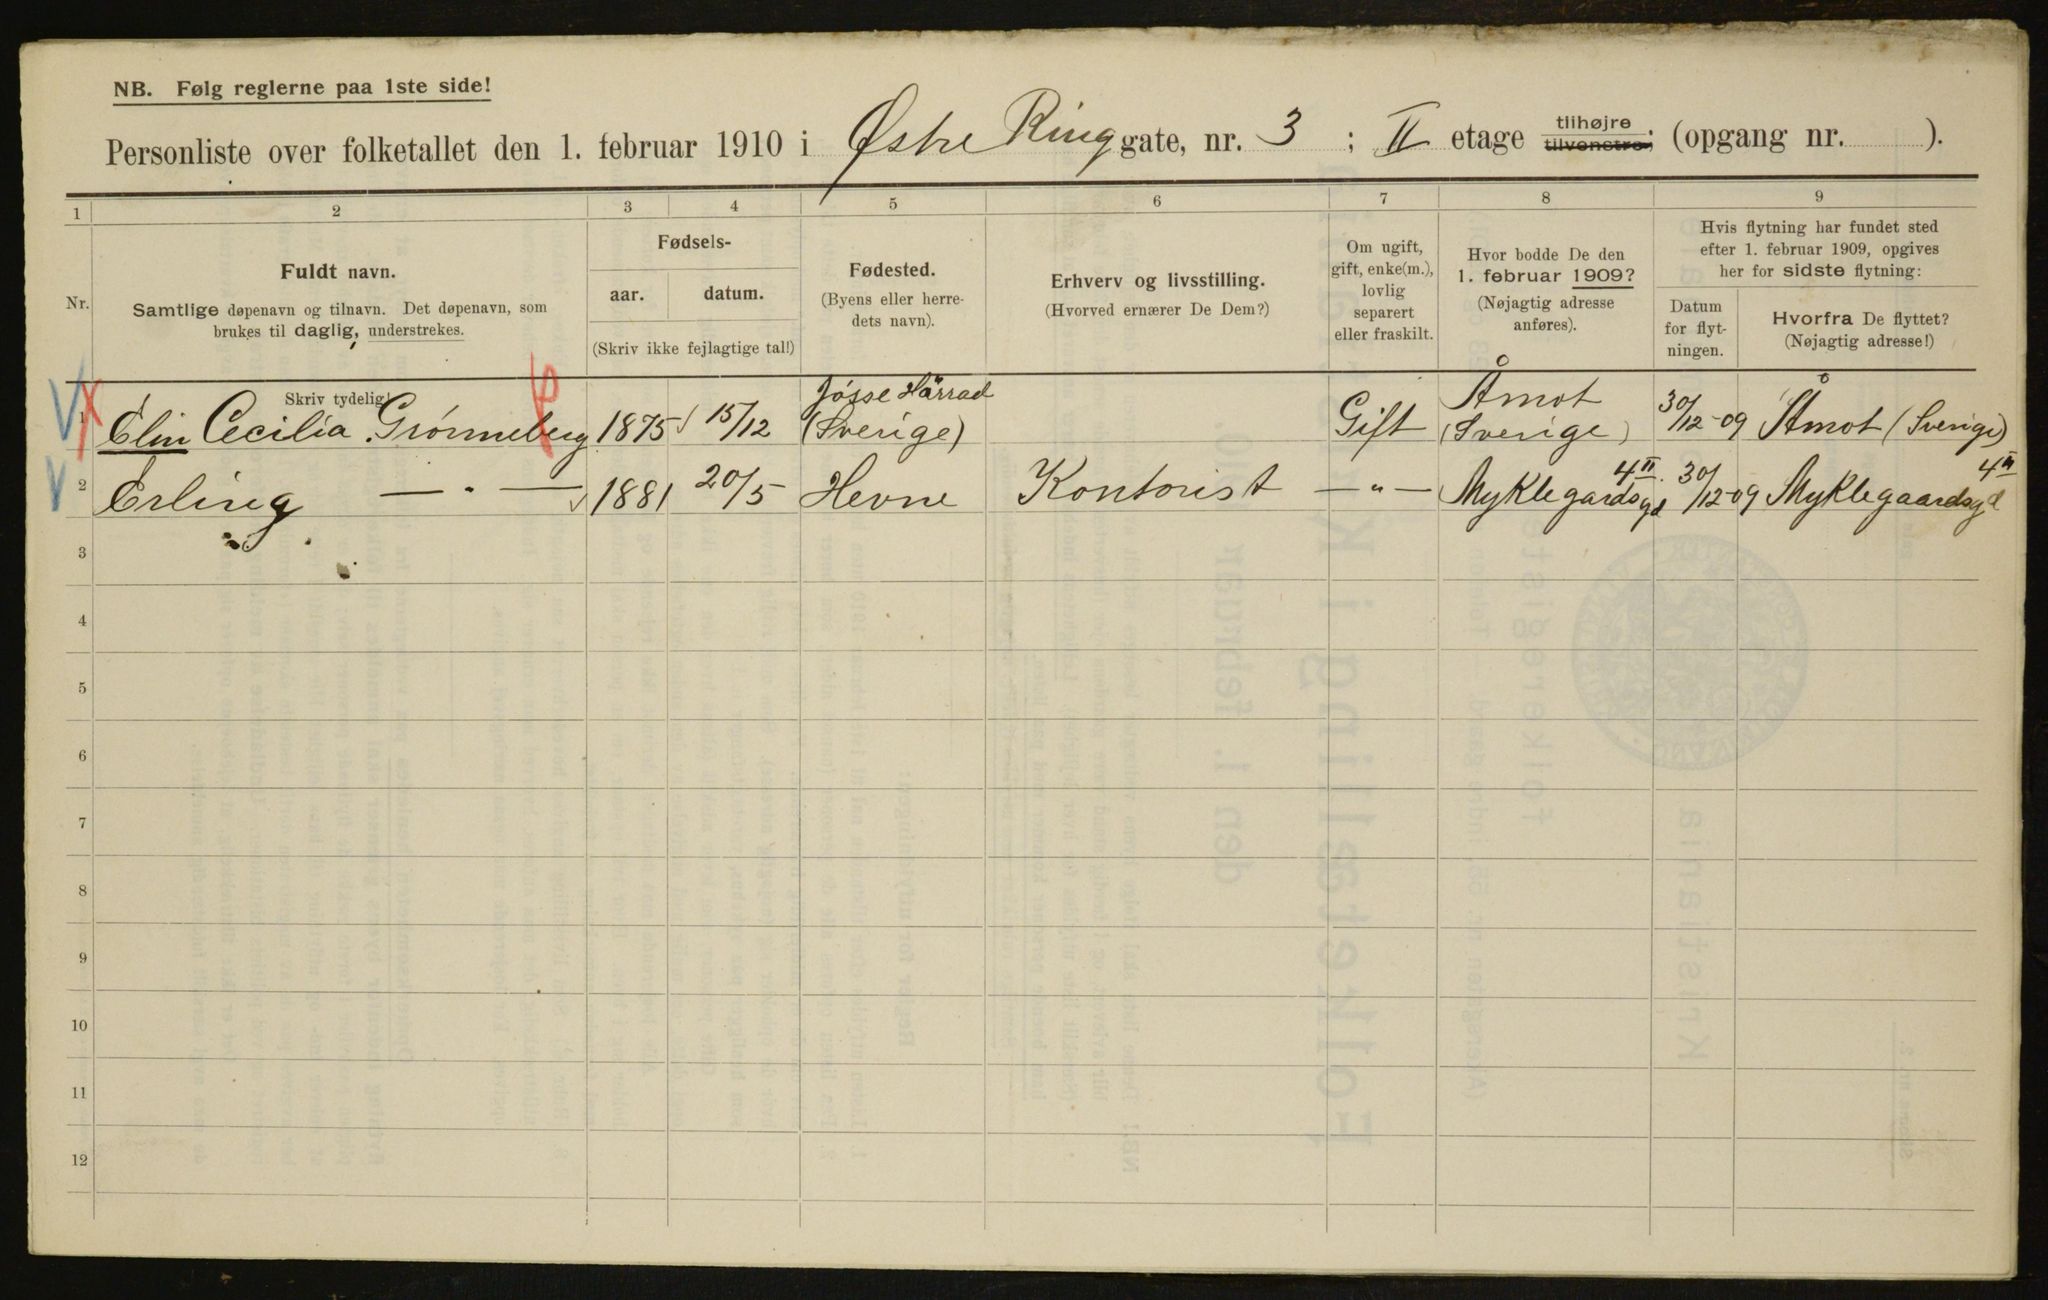 NB. Følg reglerne paa 1ste side!
Personliste over folketallet den 1. februar 1910 i Østre Ring gate, nr. 3 ; II etage tilhøjre tilvenstre; (opgang nr. ).
1 2 3 4 5 6 7 8 9
Nr.
Fuldt navn.
Samtlige døpenavn og tilnavn. Det døpenavn, som
brukes til daglig, understrekes.
Skriv tydelig!
Fødsels-
aar. datum.
(Skriv ikke fejlagtige tal!)
Fødested.
(Byens eller herre-
dets navn).
Erhverv og livsstilling.
(Hvorved ernærer De Dem?)
Om ugift,
gift, enke(m.),
lovlig
separert
eller fraskilt.
Hvor bodde De den
1. februar 1909?
(Nøjagtig adresse
anføres).
Hvis flytning har fundet sted
efter 1. februar 1909, opgives
her for sidste flytning:
Datum
for flyt-
ningen.
Hvorfra De flyttet?
(Nøjagtig adresse!)
1 Elin Cecilia Grønneberg 1875 15/12 Jösse Härrad (Sverige) Gift Åmot (Sverige) 30/12-09 Åmot (Sverige)
2 Erling — " — 1881 20/5 Hevne Kontorist — " — Myklegardsgd 4 II. 30/12-09 Myklegaardsgd 4 II
3
4
5
6
7
8
9
10
11
12